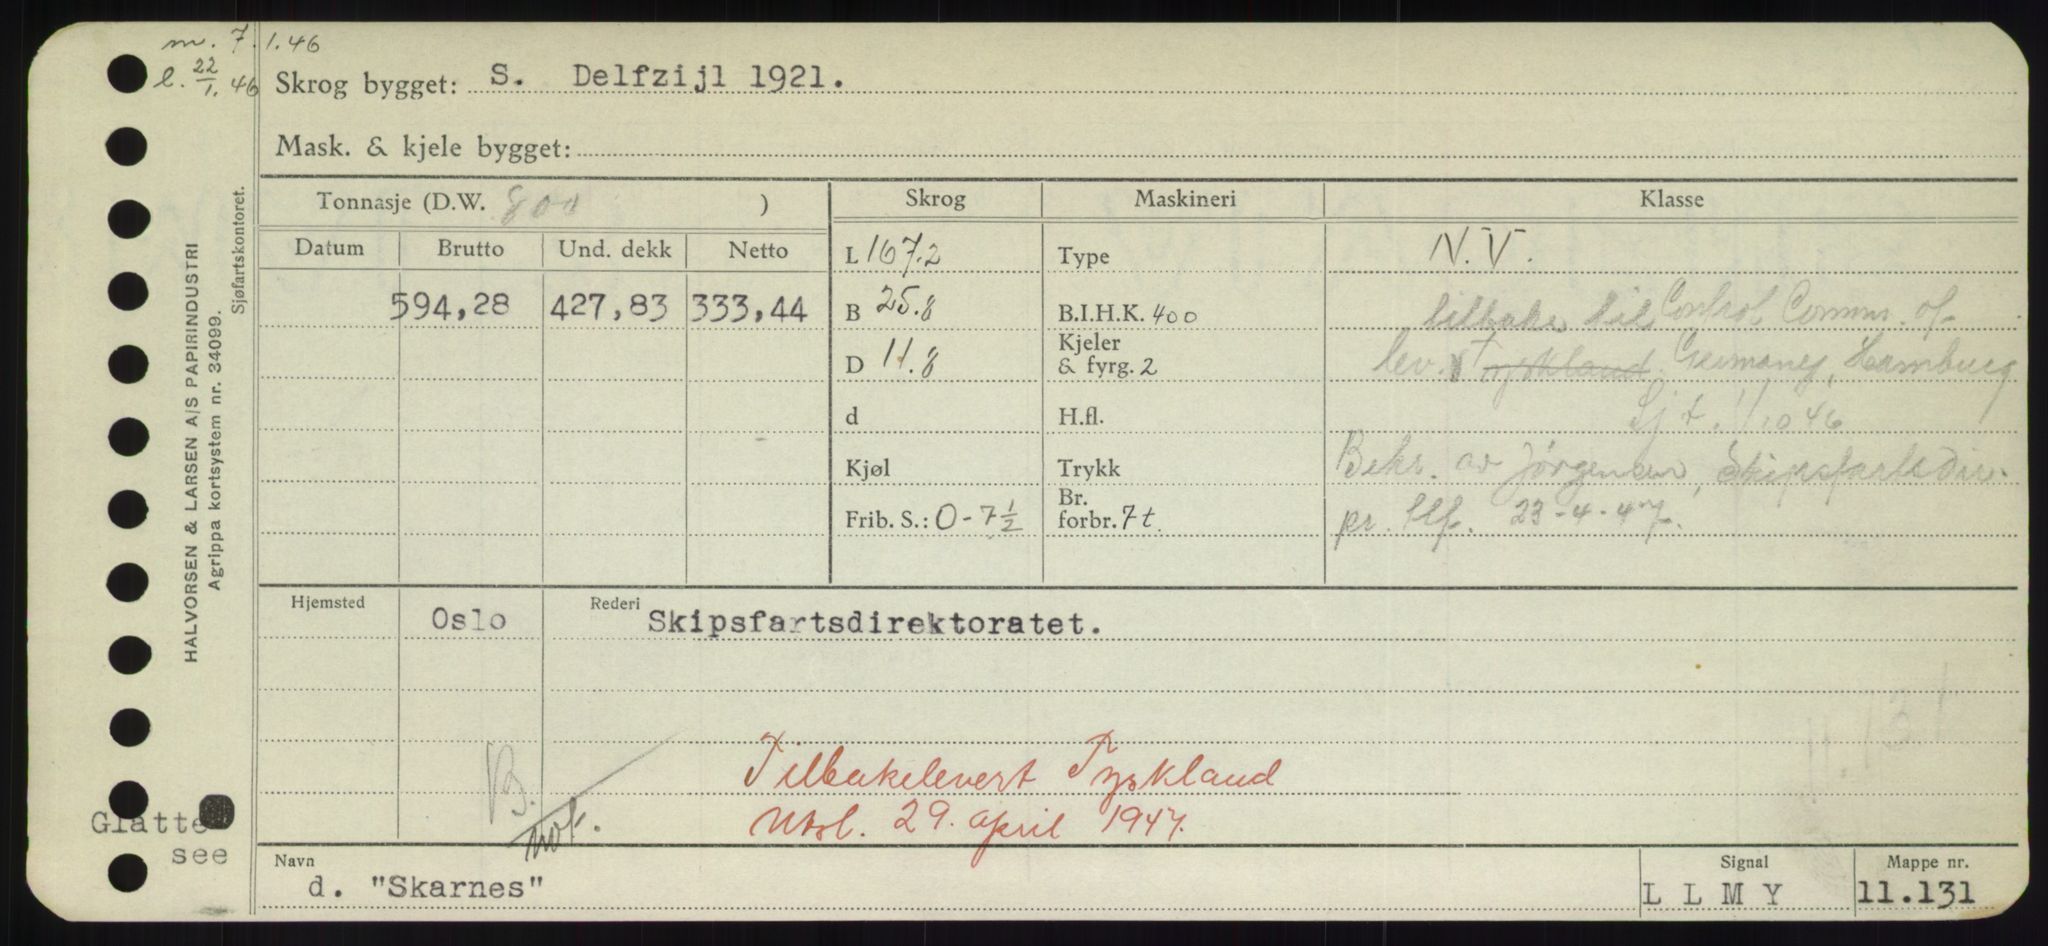 m. 7.1.46
l. 22/1.46
Skrog bygget: S. Delfzijl 1921.
Mask. & kjele bygget:
HALVORSEN & LARSEN A/S PAPIRINDUSTRI
Agrippa kortsystem nr. 34099.
Sjøfartskontoret.
Tonnasje (D.W. 800 )
Skrog Maskineri Klasse
Datum Brutto Und. dekk Netto
594,28 427,83 333,44
L 167.2 Type N.V.
B 25.8 B.I.H.K. 400 tilbake til Control Comms. of
D 11.8 Kjeler & fyrg. 2 lev. Tyskland Germany, Hamburg
d H.fl. Sjt. 11/10 46
Kjøl Trykk Bekr. av Jørgensen, Skipsfartsdir.
Frib. S.: 0-7 1/2 Br. forbr. 7 t. pr. tlf. 23-4-47.
Hjemsted Oslo Rederi Skipsfartsdirektoratet.
11.131
B.
Tilbakelevert Tyskland
not. Utsl. 29. april 1947.
Glatte
see
Navn Signal Mappe nr.
d. "Skarnes" L L M Y 11.131